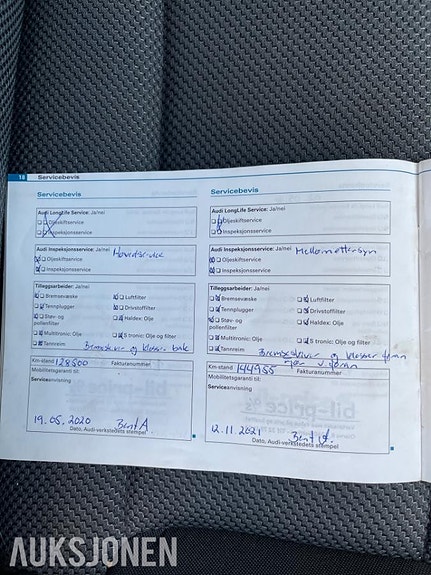 18 Servicebevis
Servicebevis
Audi LongLife Service: Ja/nei
Oljeskiftservice
Inspeksjonsservice
Audi Inspeksjonsservice: Ja/nei Hovedservice
Oljeskiftservice
Inspeksjonsservice
Tilleggsarbeider: Ja/nei
Bremsevæske Luftfilter
Tennplugger Drivstoffilter
Støv- og pollenfilter Haldex: Olje
Multitronic: Olje S tronic: Olje og filter
Tannreim Bremseskiver og klosser bak
Km-stand 128500 Fakturanummer
Mobilitetsgaranti til:
Serviceanvisning
19.05.2020 Bent A
Dato, Audi-verkstedets stempel
Servicebevis
Audi LongLife Service: Ja/nei
Oljeskiftservice
Inspeksjonsservice
Audi Inspeksjonsservice: Ja/nei Mellomettersyn
Oljeskiftservice
Inspeksjonsservice
Tilleggsarbeider: Ja/nei
Bremsevæske Luftfilter
Tennplugger Drivstoffilter
Støv- og pollenfilter Haldex: Olje
Multitronic: Olje S tronic: Olje og filter
Tannreim Bremseskiver og klosser foran
Km-stand 144955 Fakturanummer
Mobilitetsgaranti til:
Serviceanvisning
12.11.2021 Bent A
Dato, Audi-verkstedets stempel
AUKSJONEN